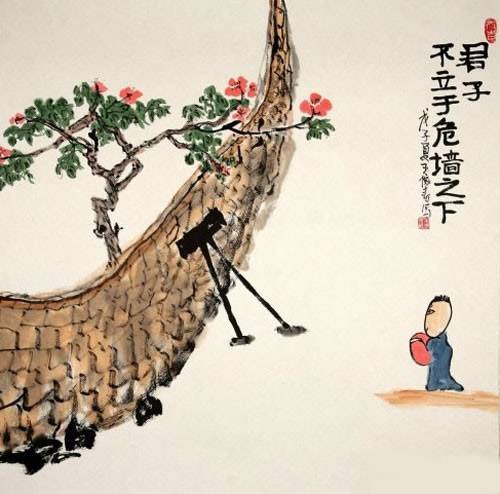 君子
不立于危墙之下
戊子夏